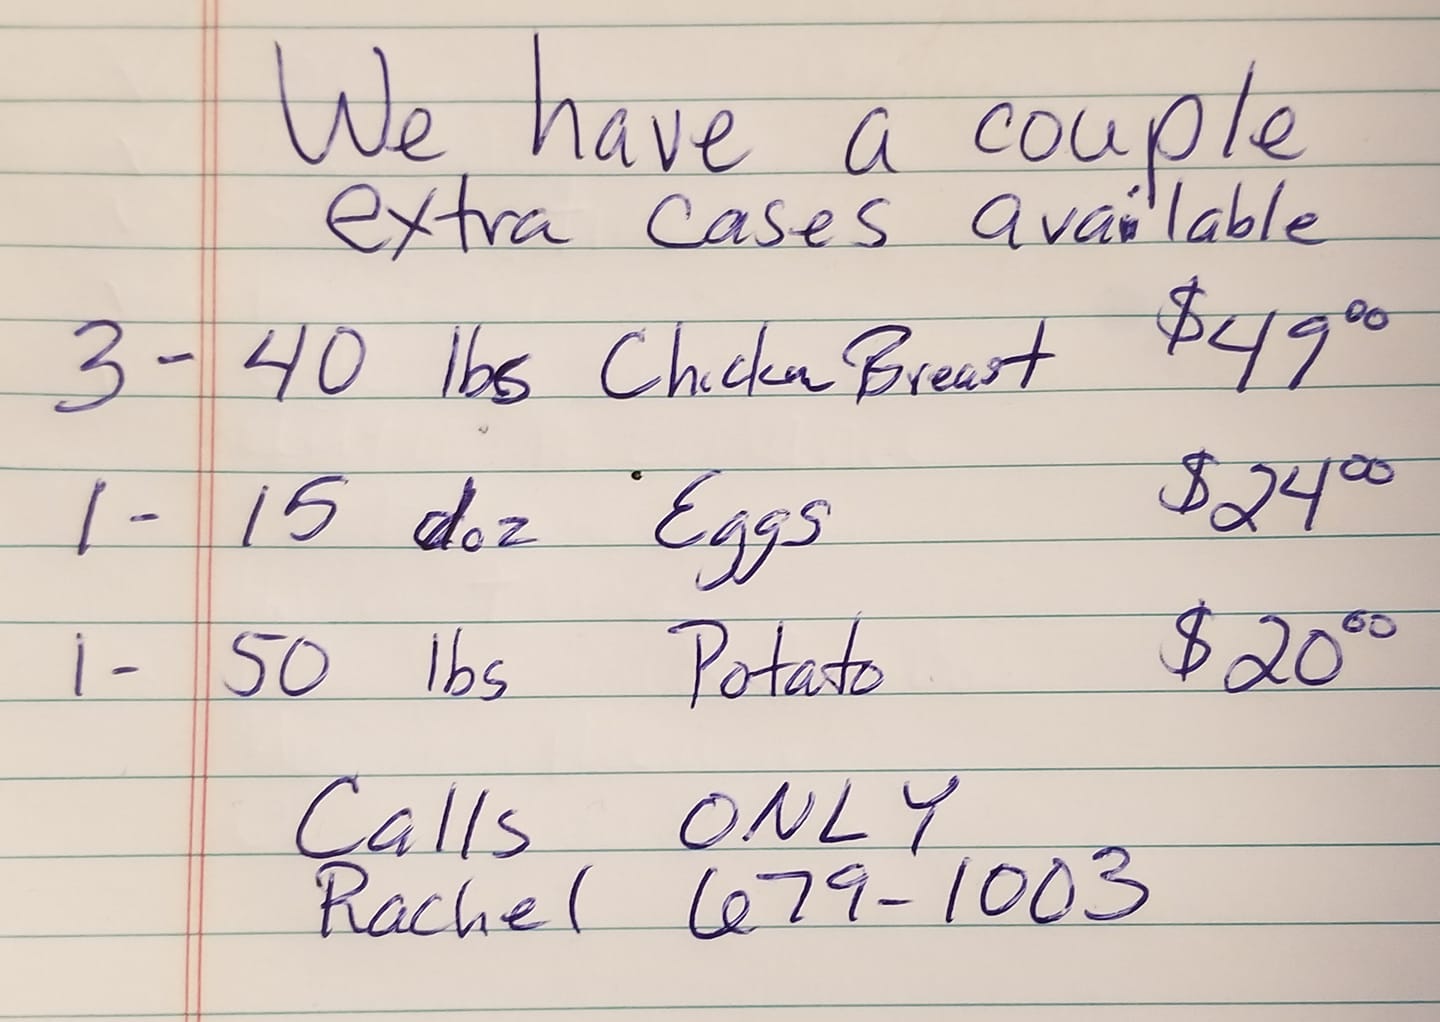 We have a couple
extra cases available
3 - 40 lbs Chicken Breast $49.00
1 - 15 doz Eggs $24.00
1 - 50 lbs Potato $20.00
Calls ONLY
Rachel 679-1003